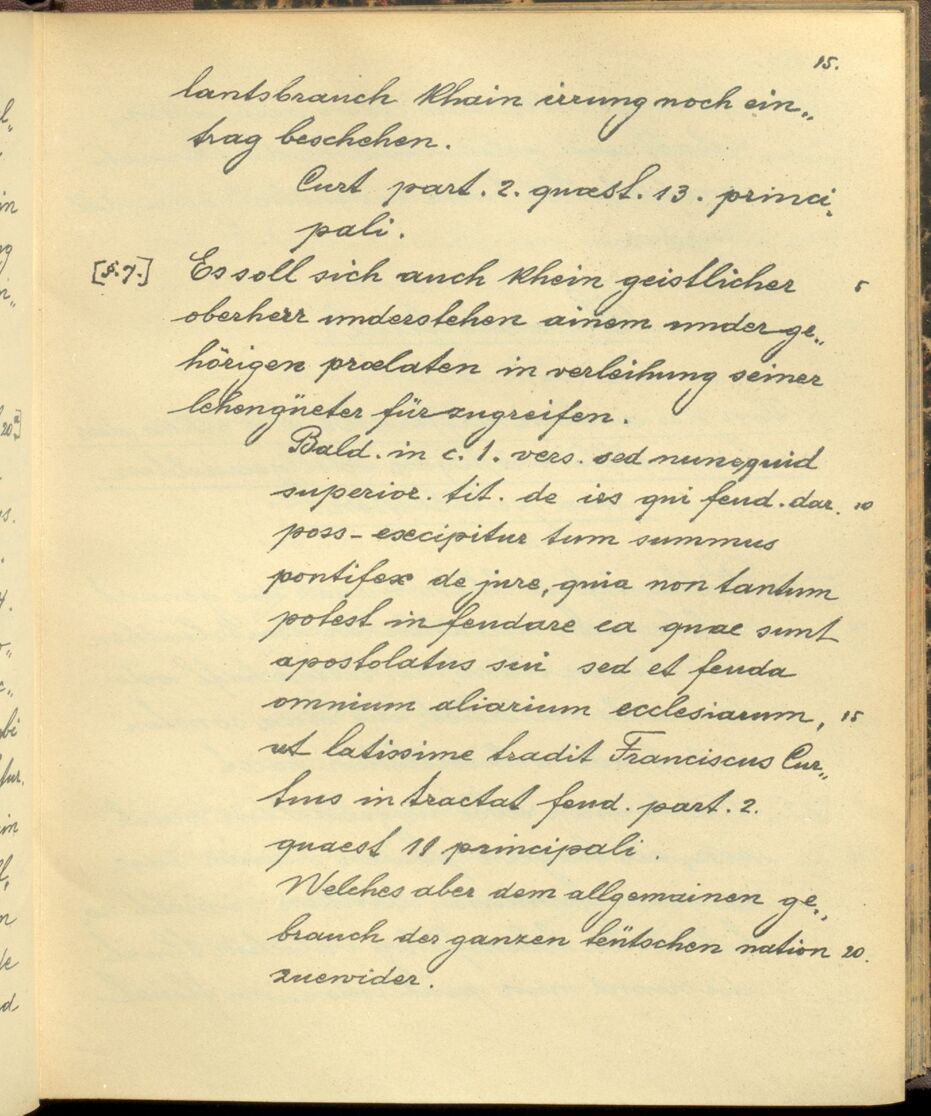 15.
lantsbrauch khain irrung noch ein„
trag beschehen.
Curt part. 2. quæst. 13. princi„
pali.
[§.7.] Es soll sich auch khein geistlicher 5
oberherr understehen ainem under ge„
hörigen prælaten in verleihung seiner
lehengüeter für zugreifen.
Bald. in c. 1. vers. sed nunequid
superior. tit. de iis qui feud. dar. 10
poss- excipitur tum summus
pontifex de jure, quia non tantum
potest infeudare ea quae sunt
apostolatus sui sed et feuda
omnium aliarium ecclesiarum, 15
ut latissime tradit Franciscus Cur„
tius in tractat feud. part. 2.
quaest 11 principali.
Welches aber dem allgemainen ge„
brauch der ganzen teütschen nation 20.
zuewider.